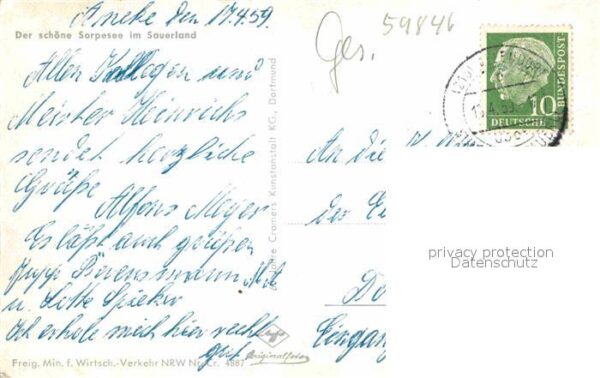 Aneke den 17.4.59.
Der schöne Sorpesee im Sauerland
Allen Kollegen und
Meister Heinrichs
sendet herzliche
Grüße
Alfons Meyer
Es läßt auch grüßen
Jupp
u. Lotte Spieker
Ich erhole mich hier recht
gut
Freig. Min. f. Wirtsch.-Verkehr NRW Nr. Cr. 4887
Cramers Kunstanstalt KG., Dortmund
Agfa
Originalfoto
Ges. 59846
DEUTSCHE
BUNDESPOST
10
An die
der
Do
Eingang
privacy protection
Datenschutz